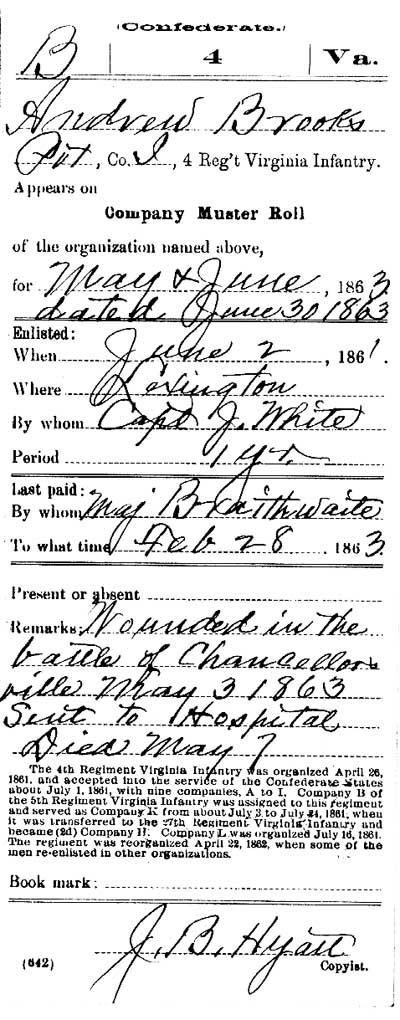 (Confederate.)
B | 4 | Va.
Andrew Brooks
Pvt, Co. I, 4 Reg't Virginia Infantry.
Appears on
Company Muster Roll
of the organization named above,
for May & June, 1863.
dated June 30 1863
Enlisted:
When June 2, 1861.
Where Lexington
By whom Capt J. White
Period 1 yr.
Last paid:
By whom Maj Braithwaite
To what time Feb 28, 1863.
Present or absent
Remarks: Wounded in the
battle of Chancellors
ville May 3 1863
Sent to Hospital
Died May 7
The 4th Regiment Virginia Infantry was organized April 26,
1861, and accepted into the service of the Confederate States
about July 1, 1861, with nine companies, A to I. Company B of
the 5th Regiment Virginia Infantry was assigned to this regiment
and served as Company K from about July 3 to July 24, 1861, when
it was transferred to the 27th Regiment Virginia Infantry and
became (2d) Company H. Company L was organized July 16, 1861.
The regiment was reorganized April 22, 1862, when some of the
men re-enlisted in other organizations.
Book mark:
J. B. Hyatt
(642) Copyist.